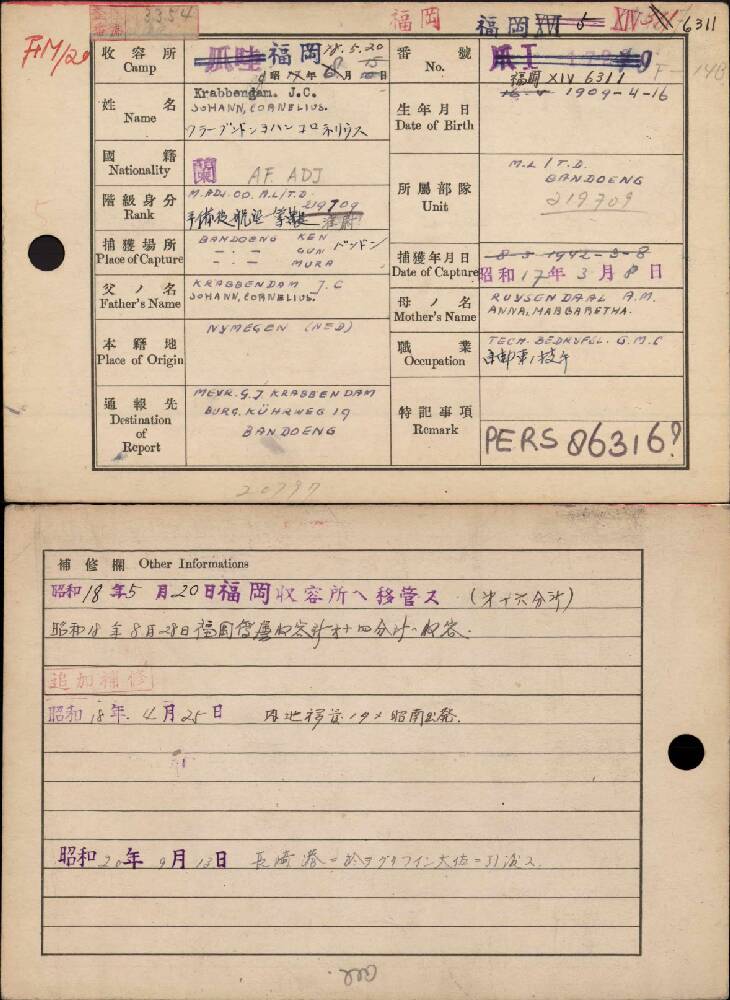 3354
福岡 福岡 XVI 5 XIV 6311
収容所 Camp 爪哇 福岡 18.5.20
昭 年 月 日
番號 No. 爪I
福岡 XIV 6311 F-148
姓名 Name Krabbendam. J.C.
JOHANN, CORNELIUS.
生年月日 Date of Birth 1909-4-16
國籍 Nationality 蘭 AF. ADJ
階級身分 Rank M. ADJ. CO. M.L/T.D.
219709
所屬部隊 Unit M.L/T.D.
BANDOENG
219709
捕獲場所 Place of Capture BANDOENG KEN バンドン
-"- GUN
-"- MURA
捕獲年月日 Date of Capture 8-3-1942-3-8
昭和17年3月8日
父ノ名 Father's Name KRABBENDAM J.C
JOHANN, CORNELIUS.
母ノ名 Mother's Name RUYSENDAAL A.M.
ANNA, MARGARETHA.
本籍地 Place of Origin NYMEGEN (NED)
職業 Occupation TECH. BEDRYFSL. G.M.C
通報先 Destination of Report MEVR. G.J. KRABBENDAM
BURG. KÜHRWEG 19
BANDOENG
特記事項 Remark PERS 86316?
20797
補修欄 Other Informations
昭和18年5月20日福岡収容所ヘ移管ス (第十六分所)
昭和18年8月28日福岡俘虜収容所第十四分所ヘ収容.
追加補修
昭和18年4月25日 内地移管ノタメ昭南出発.
昭和20年9月13日 長崎港ニ於テグリフイン大佐ニ引渡ス